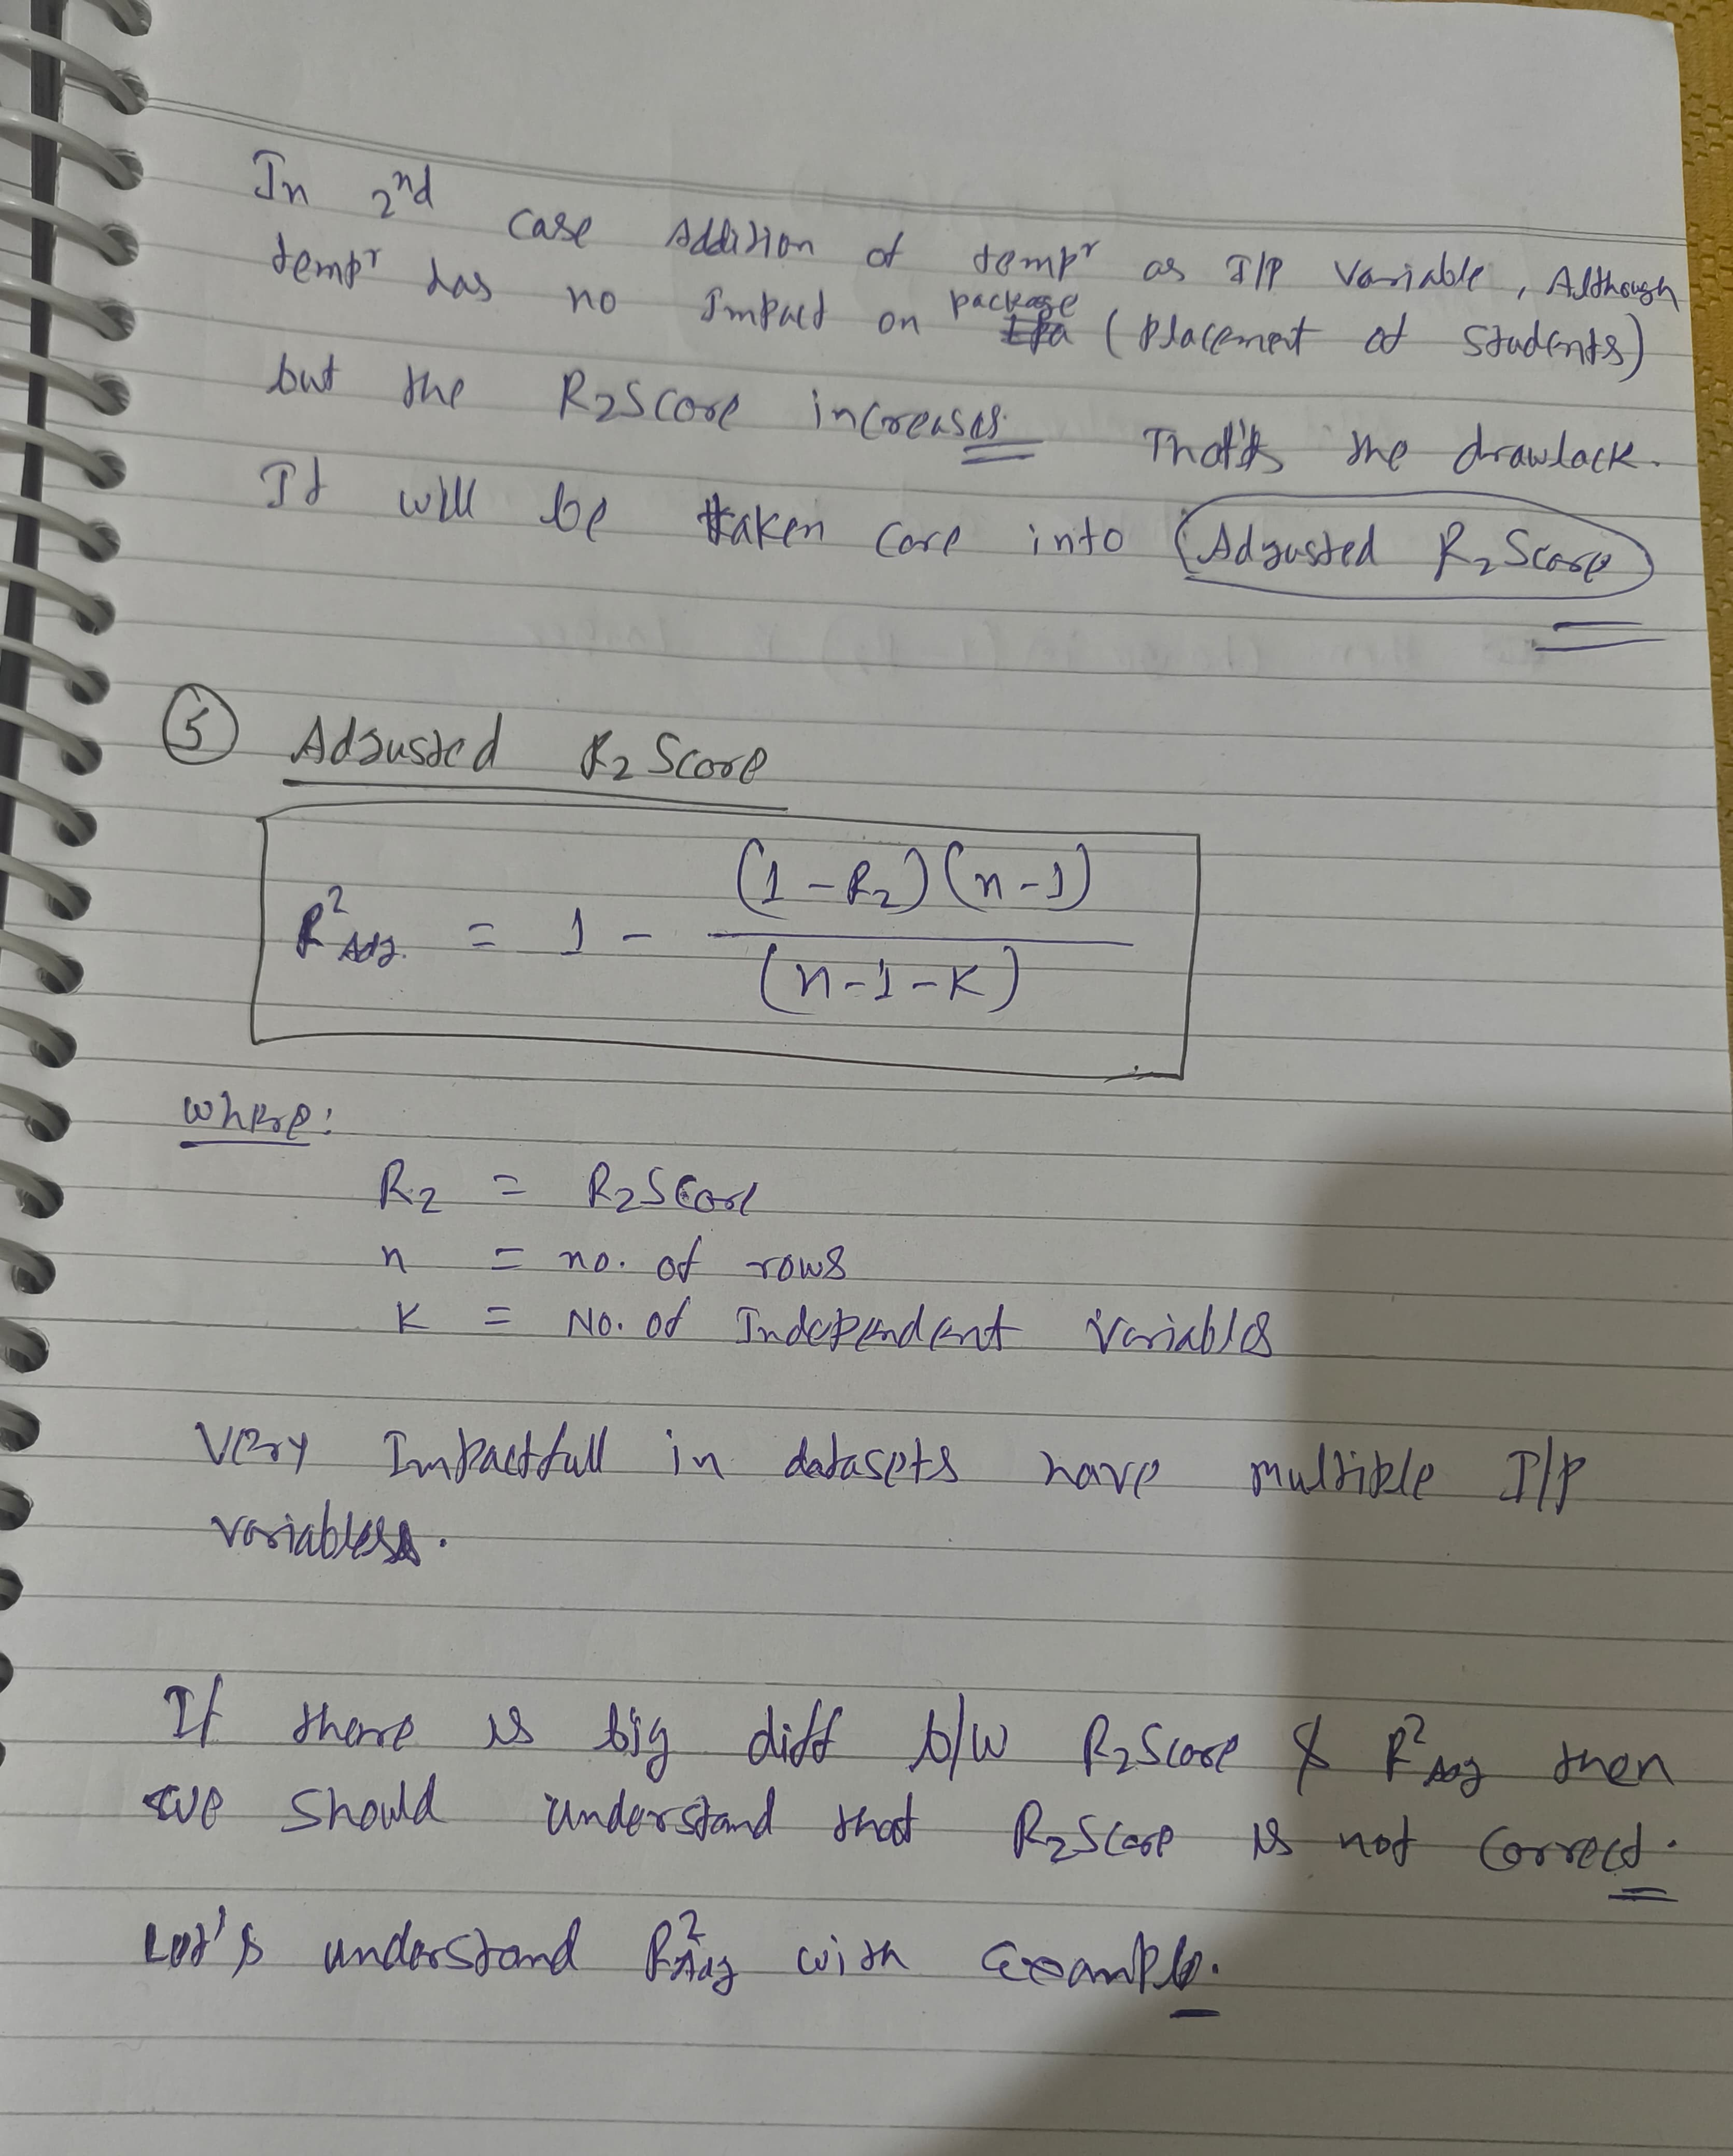 In 2nd case Addition of tempr as I/P Variable, Although
tempr has no Impact on package (Placement of Students)
but the R2Score increases. That's the drawback.
It will be taken care into Adjusted R2Score
5 Adjusted R2 Score
R²Adj. = 1 - (1-R2)(n-1) / (n-1-K)
where:
R2 = R2Score
n = no. of rows
K = No. of Independent Variables
Very Impactfull in datasets have multiple I/P
variables.
If there is big diff b/w R2Score & R²Adj then
we should understand that R2Score is not correct.
Let's understand R²Adj with example.